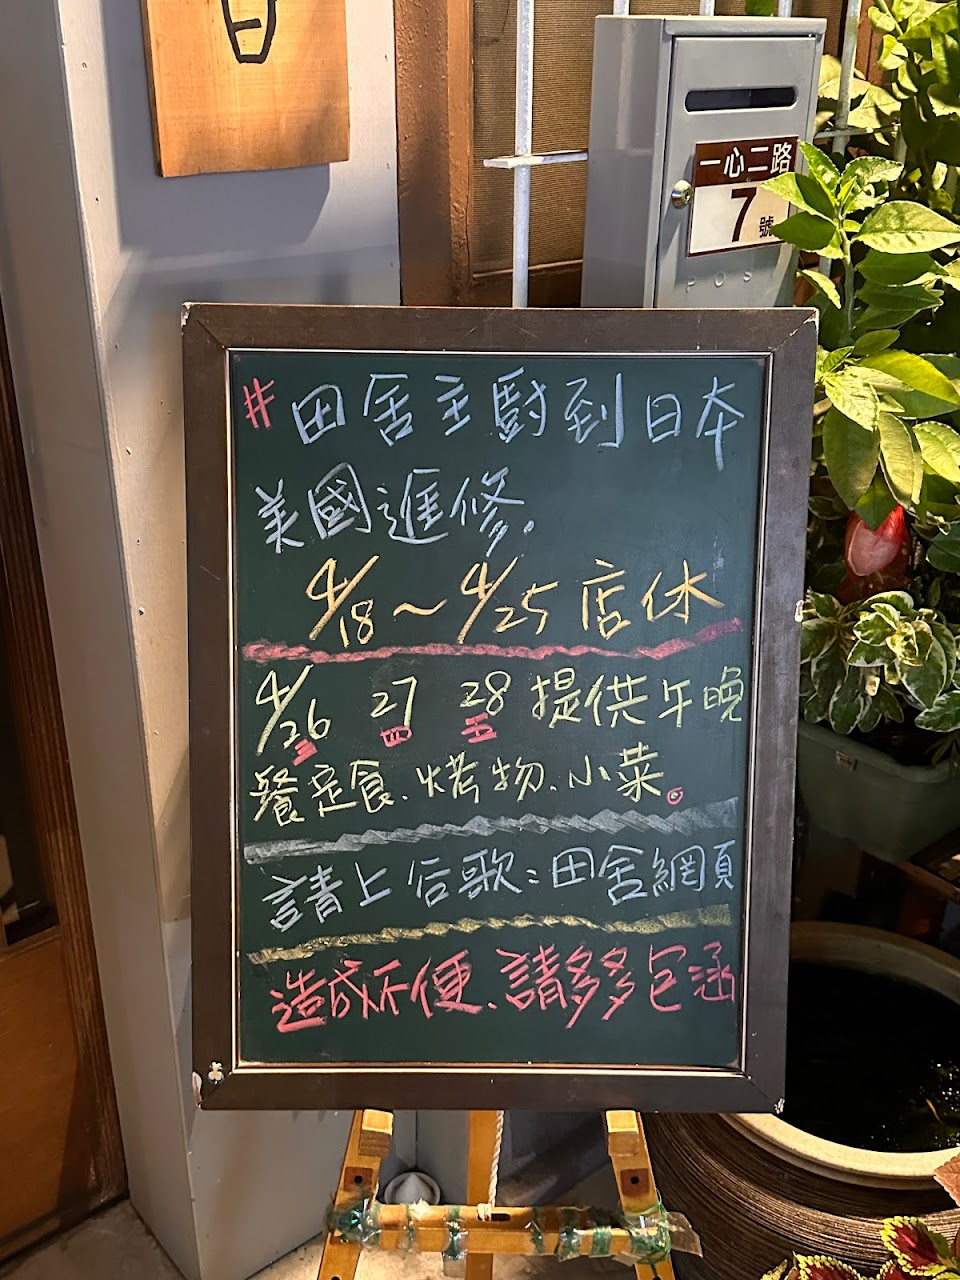 日
一心二路
7號
POS
#田舍主廚到日本
美國進修。
4/18～4/25店休
4/26 27 28 提供午晚
三 四 五
餐定食、烤物、小菜。
請上谷歌:田舍網頁
造成不便、請多多包涵